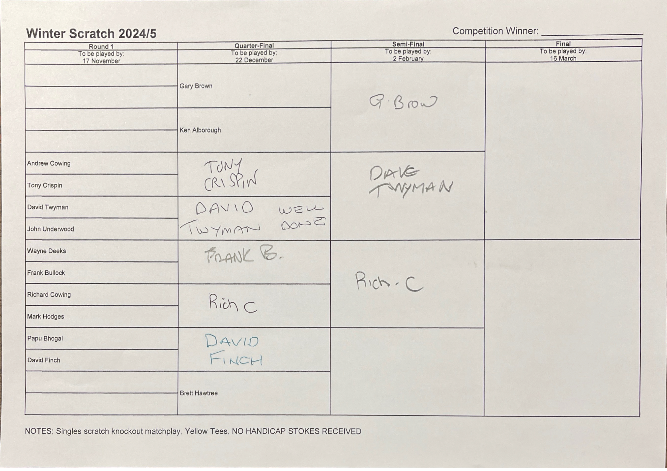 Winter Scratch 2024/5
Competition Winner:
Round 1
To be played by:
17 November
Quarter-Final
To be played by:
22 December
Semi-Final
To be played by:
2 February
Final
To be played by:
16 March
Gary Brown
Ken Alborough
G. Brow
Andrew Cowing
Tony Crispin
TONY
CRISPIN
David Twyman
John Underwood
DAVID WELL
TWYMAN DONE
DAVE
TWYMAN
Wayne Deeks
Frank Bullock
FRANK B.
Richard Cowing
Mark Hodges
Rich C
Rich. C
Papu Bhogal
David Finch
DAVID
FINCH
Brett Hawtree
NOTES: Singles scratch knockout matchplay. Yellow Tees. NO HANDICAP STOKES RECEIVED